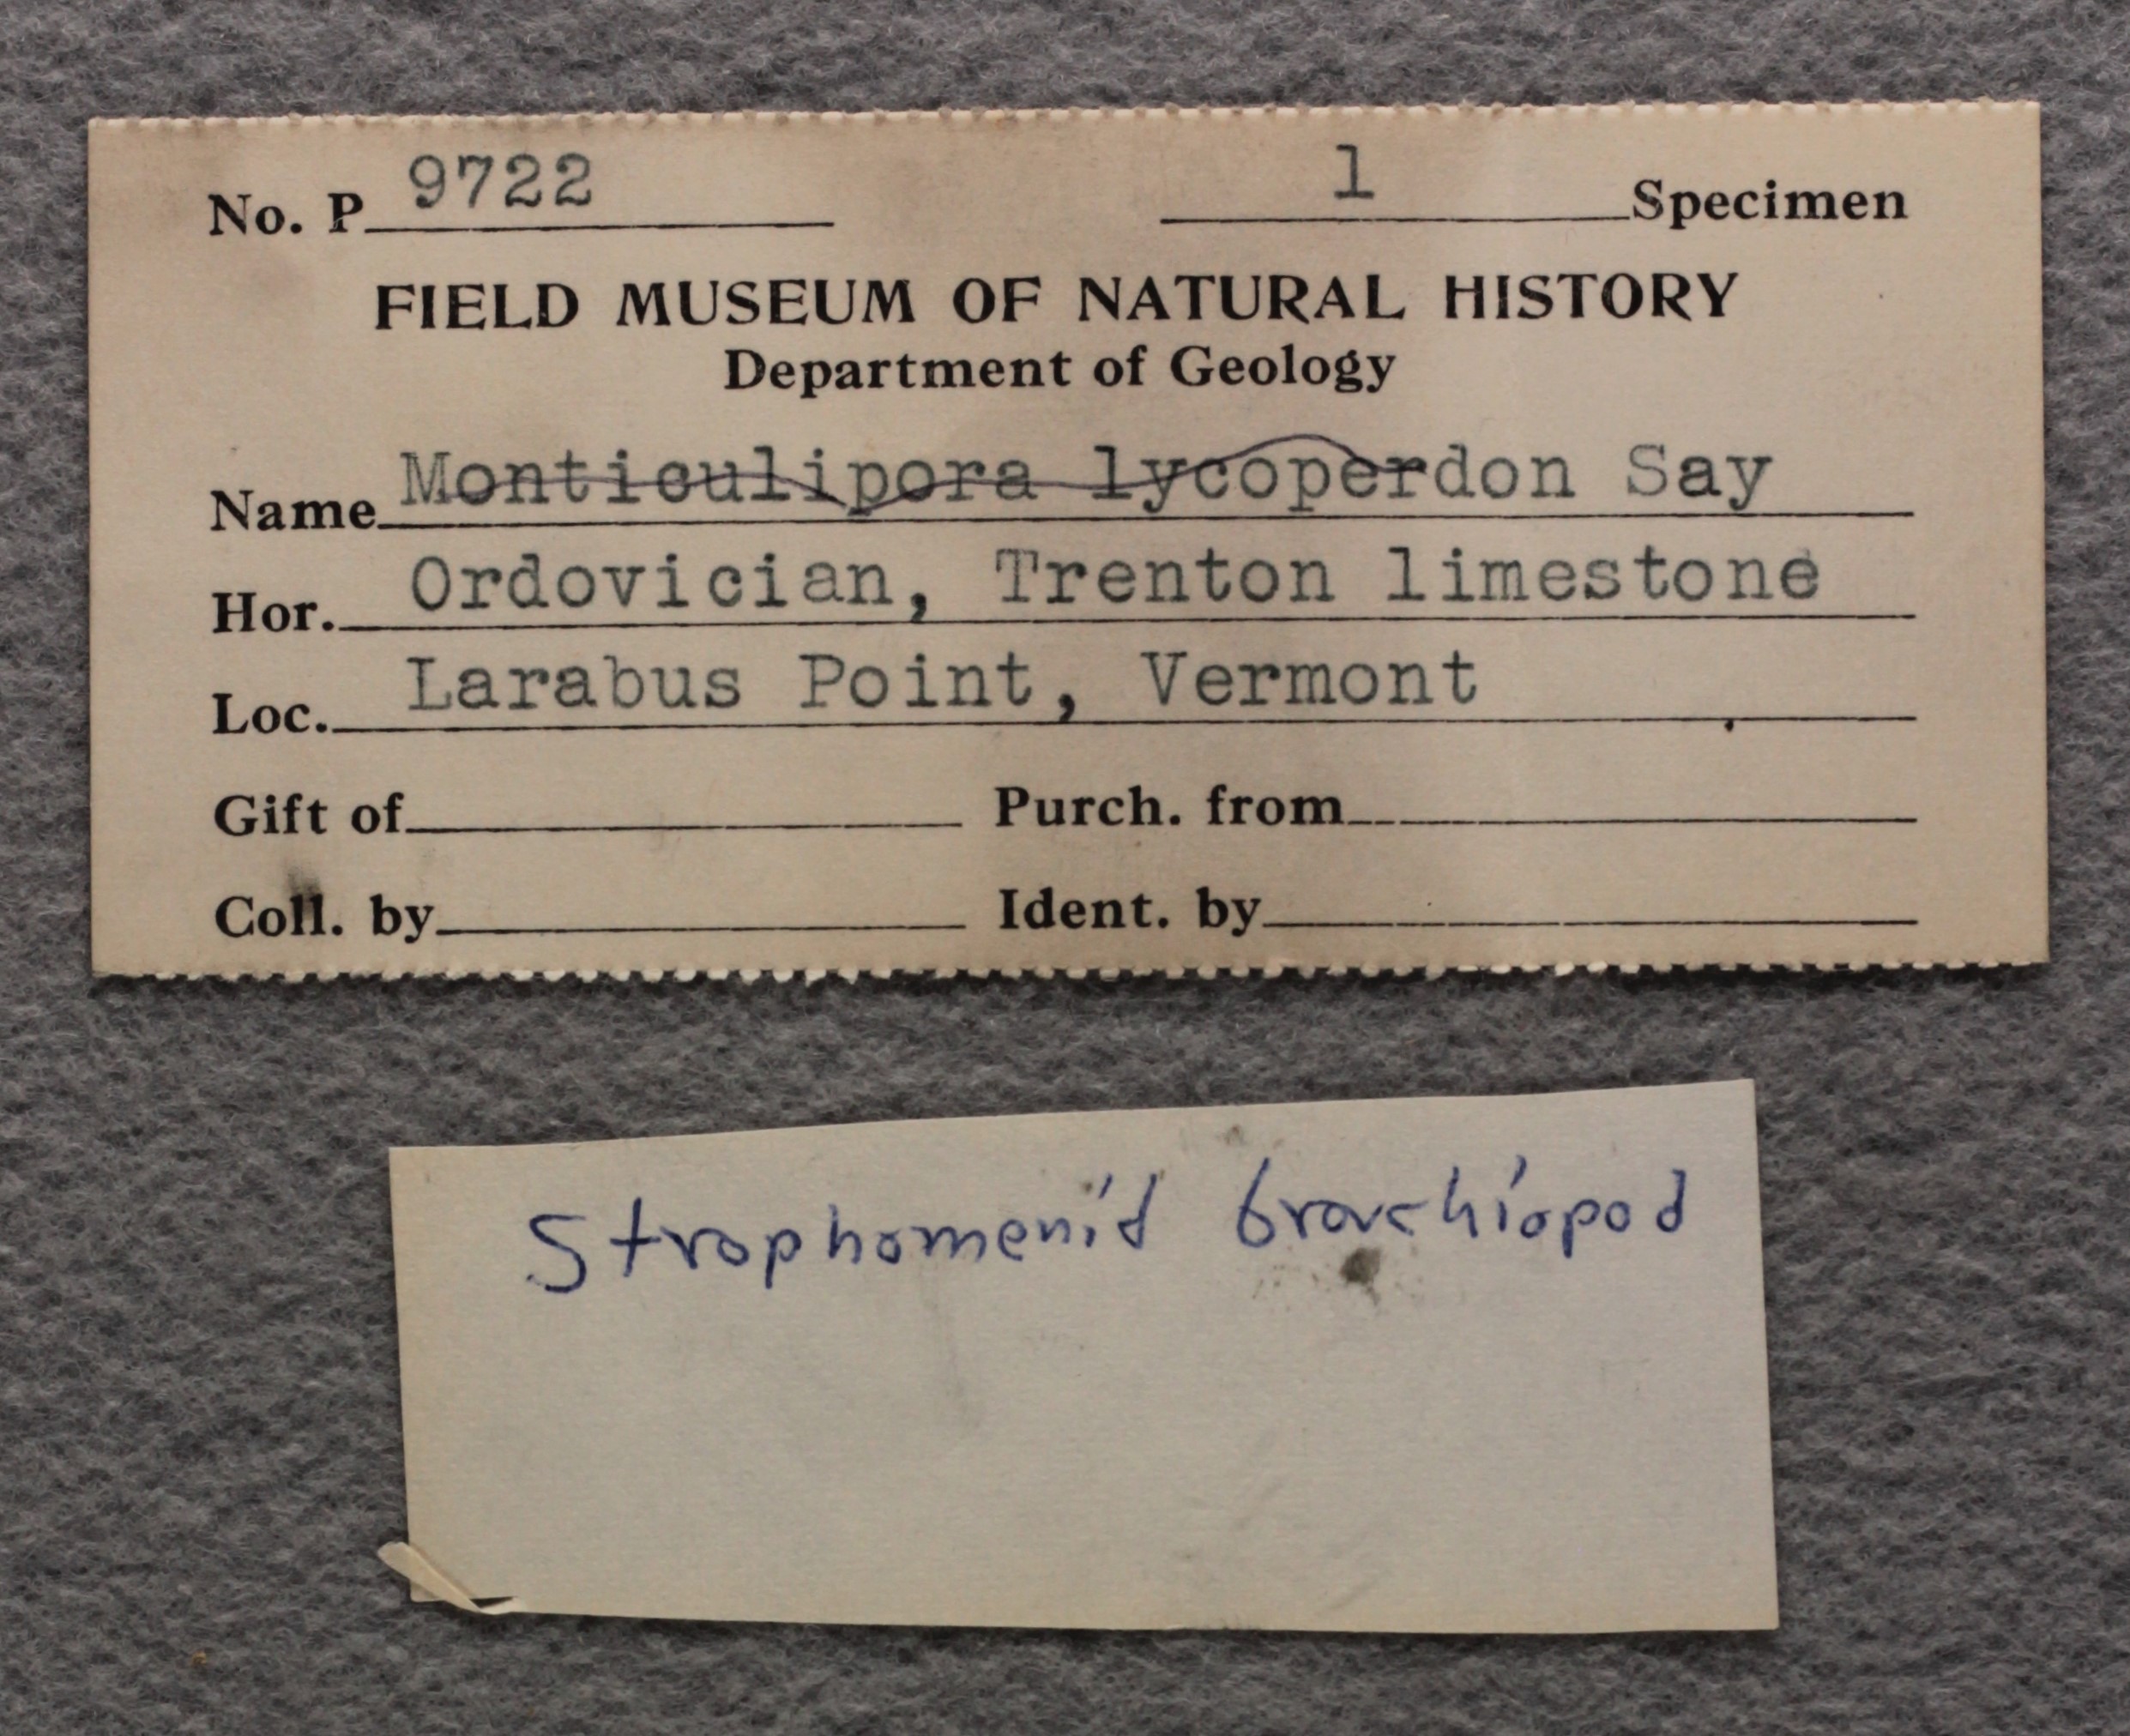 No. P 9722 1 Specimen
FIELD MUSEUM OF NATURAL HISTORY
Department of Geology
Name Monticulipora lycoperdon Say
Hor. Ordovician, Trenton limestone
Loc. Larabus Point, Vermont
Gift of Purch. from
Coll. by Ident. by
Strophomenid brachiopod